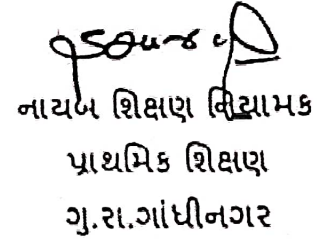 નાયબ શિક્ષણ નિયામક
પ્રાથમિક શિક્ષણ
ગુ.રા.ગાંધીનગર